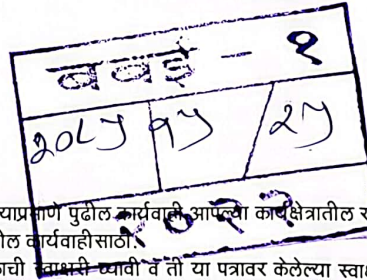 बबई - १
२०८५ १५ / २५
याप्रमाणे पुढील कार्यवाही आपल्या कार्यक्षेत्रातील
कार्यवाहीसाठी.
२०२२
स्वाक्षरी घ्यावी व ती या पत्रावर केलेल्या